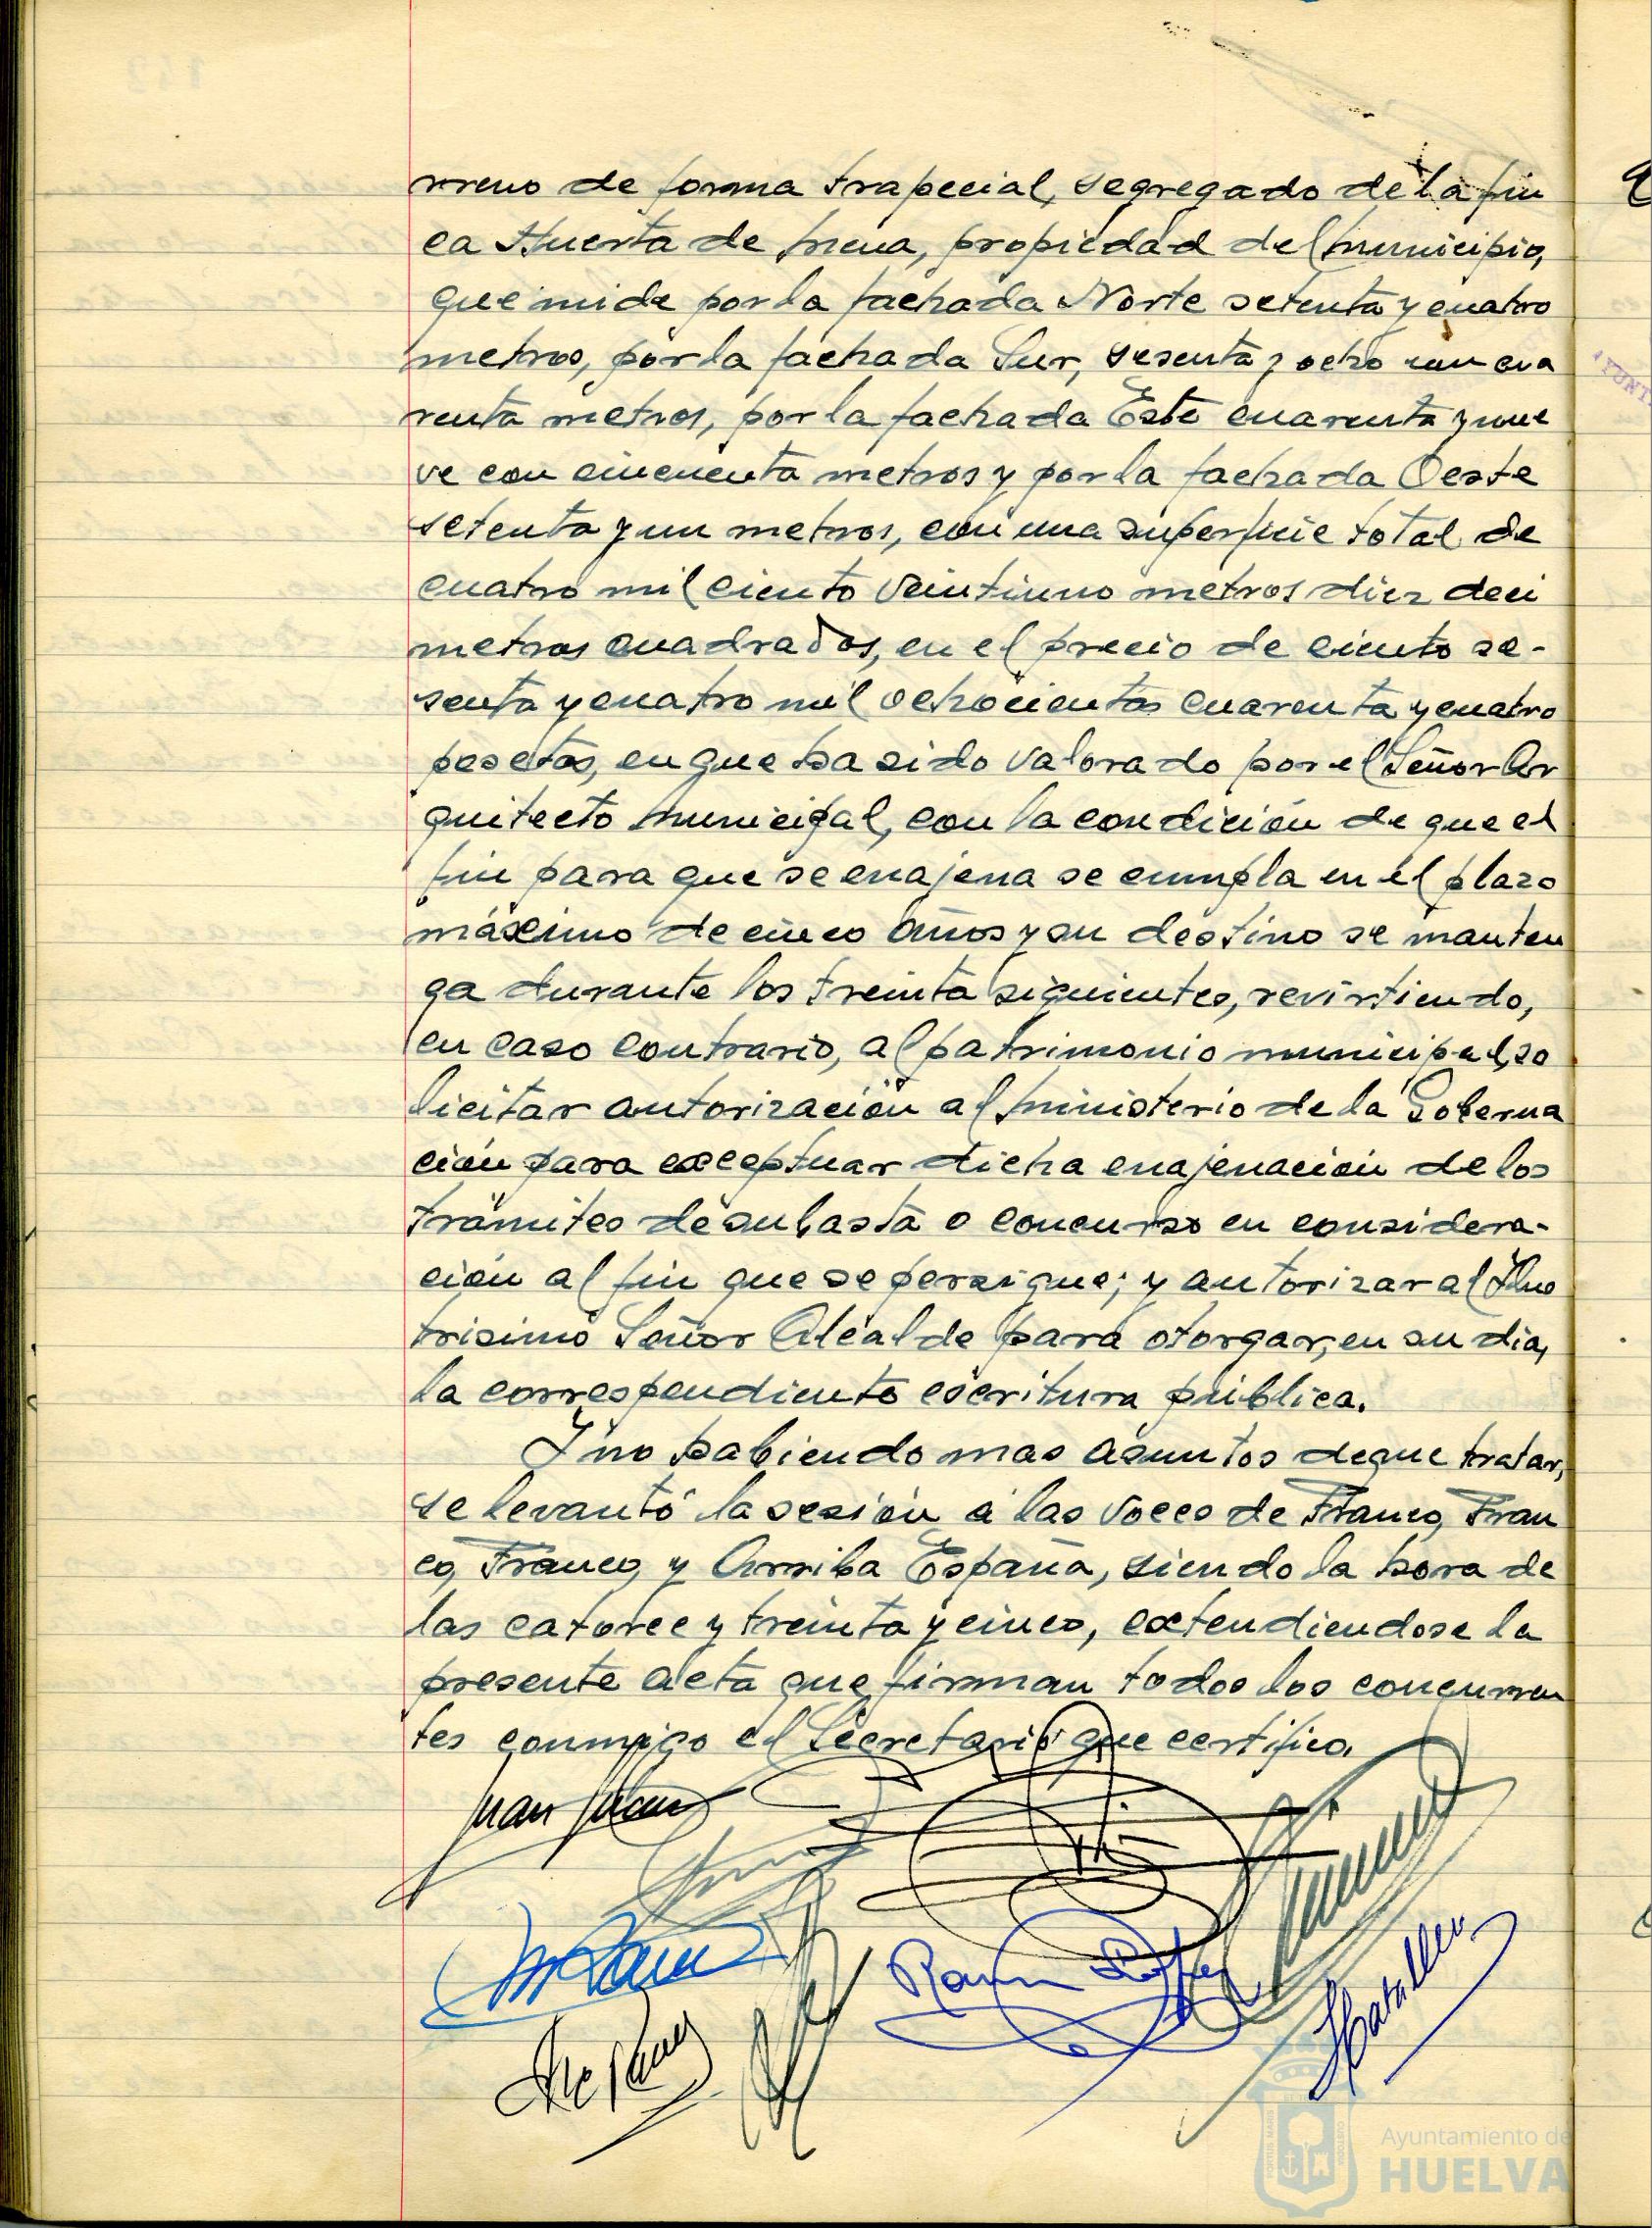 rreno de forma trapecial, segregado de la fin
ca Huerta de Mena, propiedad del Municipio,
que mide por la fachada Norte setenta y cuatro
metros, por la fachada Sur, sesenta y ocho con cua
renta metros, por la fachada Este cuarenta y nue
ve con cincuenta metros y por la fachada Oeste
setenta y un metros, con una superficie total de
cuatro mil ciento veintiuno metros diez deci
metros cuadrados, en el precio de ciento se-
senta y cuatro mil ochocientas cuarenta y cuatro
pesetas, en que ha sido valorado por el Señor Ar
quitecto Municipal, con la condición de que el
fin para que se enajena se cumpla en el plazo
máximo de cinco años y su destino se manten
ga durante los treinta siguientes, revirtiendo,
en caso contrario, al patrimonio municipal, so
licitar autorización al Ministerio de la Goberna
ción para exceptuar dicha enajenación de los
trámites de subasta o concurso en considera-
ción al fin que se persigue; y autorizar al Ilus
trisimo Señor Alcalde para otorgar, en su dia,
la correspondiente escritura pública.
Y no habiendo mas asuntos de que tratar,
se levantó la sesión a las voces de Franco, Fran
co, Franco, y Arriba España, siendo la hora de
las catorce y treinta y cinco, extendiendose la
presente acta que firman todos los concurren
tes conmigo el Secretario que certifico.
Juan
Ramón
Ayuntamiento de
HUELVA